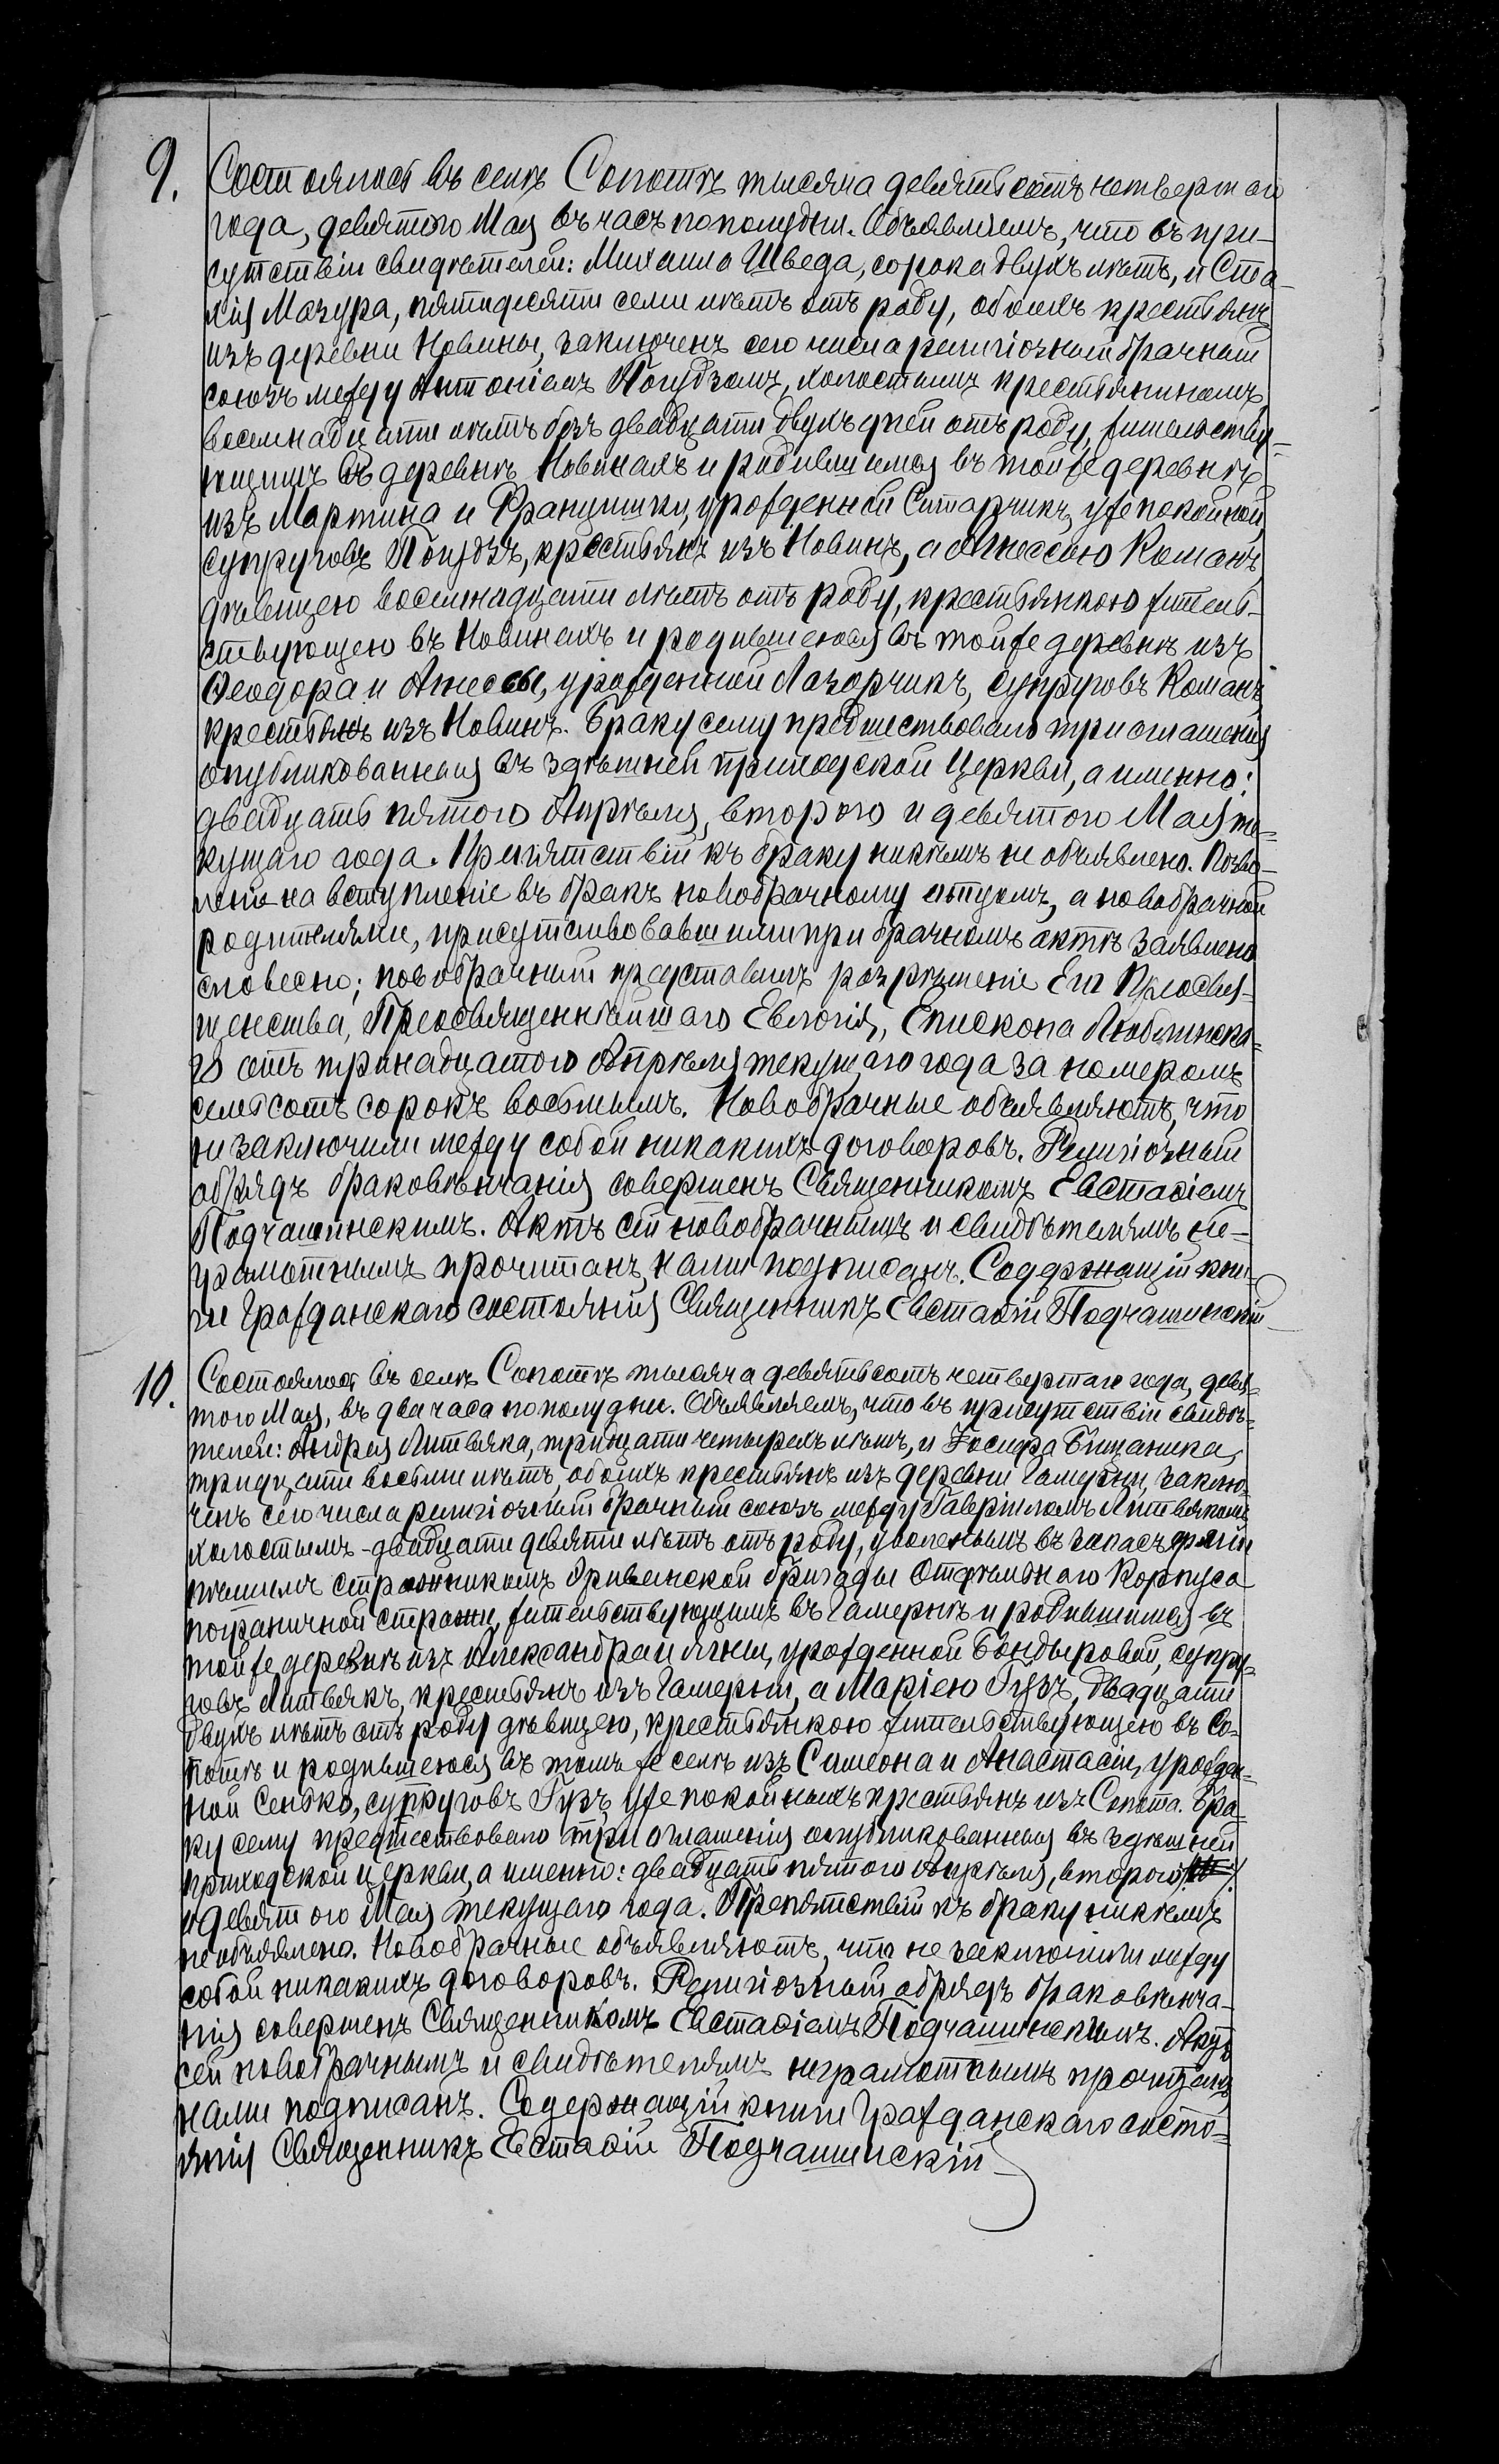 9. Состоялось въ селѣ Сопотѣ тысяча девятьсотъ четвертаго
года, девятого Мая въ часъ пополудни. Объявляемъ, что въ при-
сутствіи свидѣтелей: Михаила Шведа, сорока двухъ лѣтъ, и Ста-
хія Мазура, пятидесяти семи лѣтъ отъ роду, обоихъ крестьянъ
изъ деревни Новины, заключенъ сего числа религіозный брачный
союзъ между Антоніемъ холостымъ крестьяниномъ,
восемнадцати лѣтъ безъ двадцати двухъ дней отъ роду, жительству-
ющимъ въ деревнѣ Новинахъ и родившимся въ той же деревнѣ
изъ Мартина и Францишки, урожденной Ситарчикъ, уже покойной
супруговъ крестьянъ изъ Новинъ, а Агнессою Команъ,
дѣвицею восемнадцати лѣтъ отъ роду, крестьянкою житель-
ствующею въ Новинахъ и родившеюся въ той же деревнѣ изъ
Ѳеодора и Агнессы, урожденной Лазорчикъ, супруговъ Команъ
крестьянъ изъ Новинъ. Браку сему предшествовало три оглашенія
опубликованныя въ здѣшней приходской Церкви, а именно:
двадцать пятого Апрѣля, второго и девятого Мая те-
кущаго года. Препятствій къ браку никѣмъ не объявлено. Позво-
леніе на вступленіе въ бракъ новобрачному отцомъ, а новобрачной
родителями, присутствовавшими при брачномъ актѣ заявлено
словесно; новобрачный представилъ разрѣшеніе Его Преосвя-
щенства, Преосвященнѣйшаго Евлогія, Епископа Люблинска-
го отъ тринадцатого Апрѣля текущаго года за номеромъ
семьсотъ сорокъ восьмымъ. Новобрачные объявляютъ, что
не заключили между собой никакихъ договоровъ. Религіозный
обрядъ браковѣнчанія совершенъ Священникомъ Евстаѳіемъ
Подчашинскимъ. Актъ сей новобрачнымъ и свидѣтелямъ не-
грамотнымъ прочитанъ, нами подписанъ. Содержащій кни-
ги Гражданскаго состоянія Священникъ Евстаѳій Подчашинскій
10. Состоялось въ селѣ Сопотѣ тысяча девятьсотъ четвертаго года, девя-
того Мая, въ два часа пополудни. Объявляемъ, что въ присутствіи свидѣ-
телей: Андрея Литвяка, тридцати четырехъ лѣтъ, и Іосифа
тридцати восьми лѣтъ, обоихъ крестьянъ изъ деревни Гамерни, заклю-
ченъ сего числа религіозный брачный союзъ между Гавріиломъ Литвякомъ
холостымъ двадцати девяти лѣтъ отъ роду, уволеннымъ въ запасъ арміи
пѣшимъ стражникомъ бригады Отдѣльнаго Корпуса
пограничной стражи, жительствующимъ въ Гамернѣ и родившимся въ
той же деревнѣ изъ Александра и Агніи, урожденной Бондыровой, супру-
говъ Литвякъ, крестьянъ изъ Гамерни, а Маріею Гузъ, двадцати
двухъ лѣтъ отъ роду дѣвицею, крестьянкою жительствующею въ Со-
потѣ и родившеюся въ томъ же селѣ изъ Симеона и Анастасіи, урожден-
ной Сенько, супруговъ Гузъ, уже покойныхъ крестьянъ изъ Сопота. Бра-
ку сему предшествовало три оглашенія опубликованныя въ здѣшней
приходской церкви, а именно: двадцать пятого Апрѣля, второго
и девятого Мая текущаго года. Препятствій къ браку никѣмъ
не объявлено. Новобрачные объявляютъ, что не заключили между
собой никакихъ договоровъ. Религіозный обрядъ браковѣнча-
нія совершенъ Священникомъ Евстаѳіемъ Подчашинскимъ. Актъ
сей новобрачнымъ и свидѣтелямъ неграмотнымъ прочитанъ,
нами подписанъ. Содержащій книги Гражданскаго состо-
янія Священникъ Евстаѳій Подчашинскій